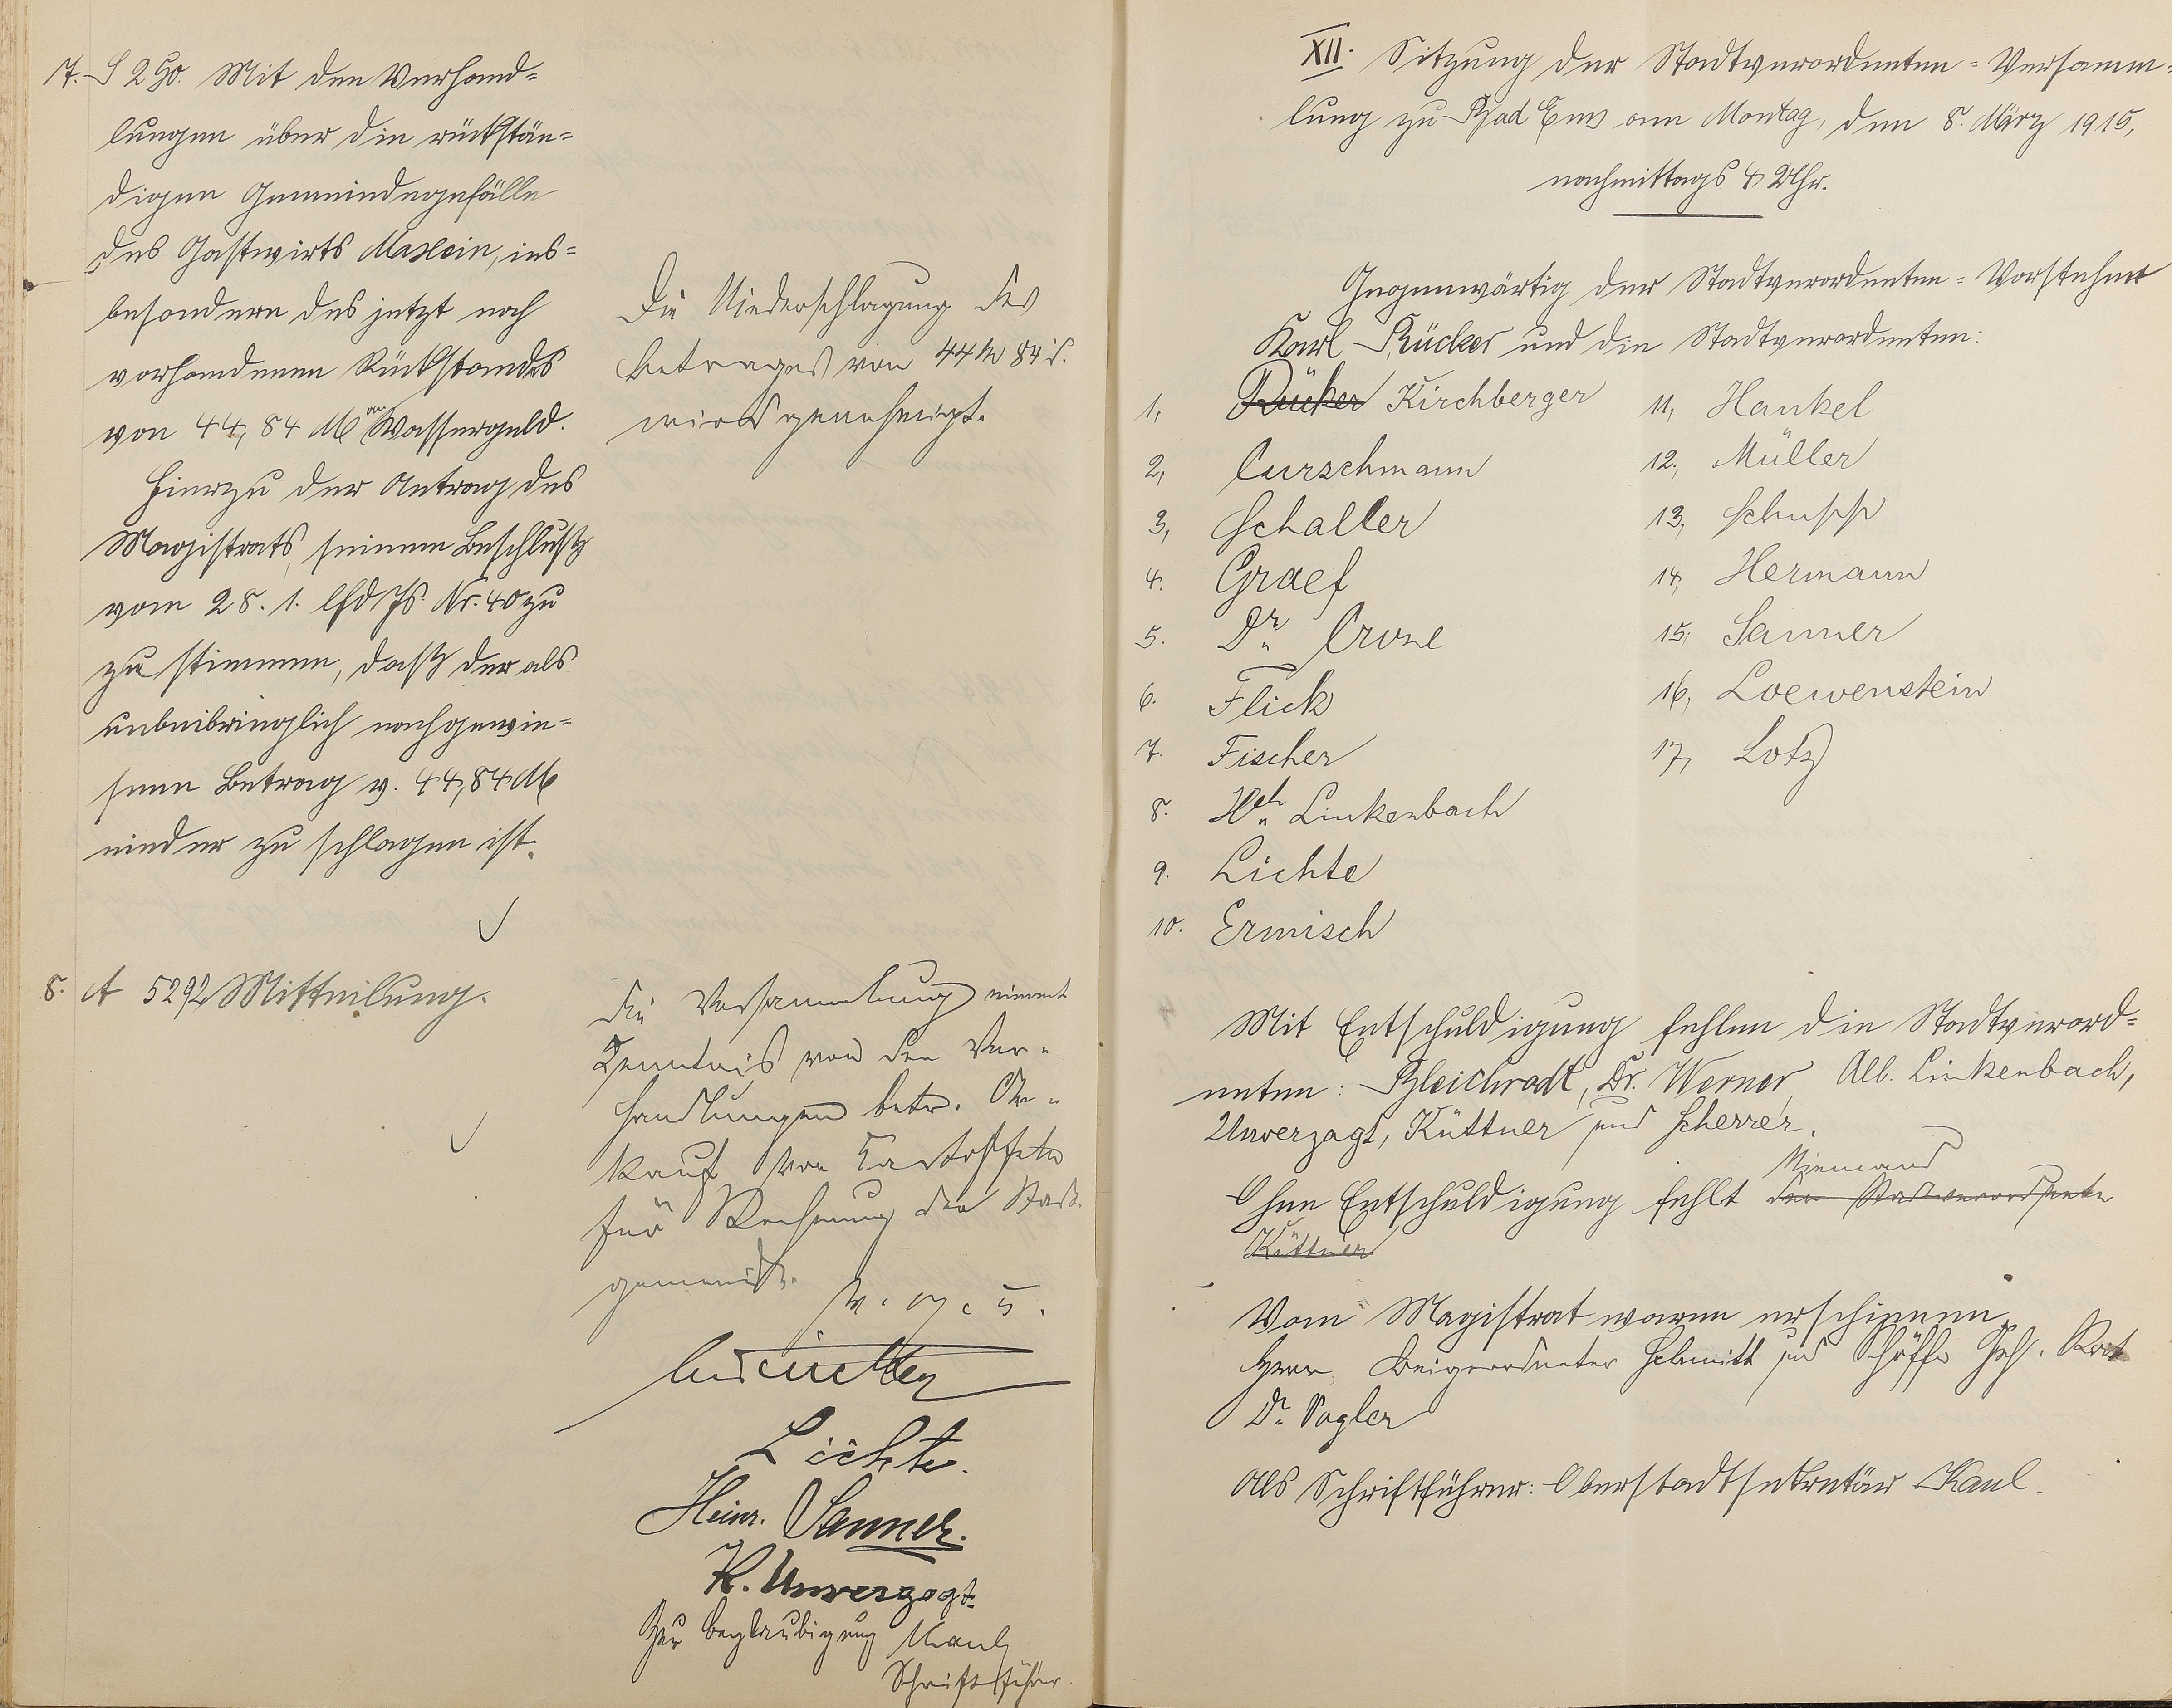 7. S 290. Mit den Verhand=
lungen über die rückstän=
digen Gemeindegefälle
des Gastwirts Maxein, ins=
besondere des jetzt noch
vorhandenen Rückstandes
von 44,84 M an Wassergeld.
Hierzu der Antrag des
Magistrats, seinem Beschluß
vom 28. 1. lfd Js. Nr. 40 zu
zu stimmen, daß der als
unbeibringlich nachgewie=
sene Betrag v. 44,84 M
nieder zu schlagen ist.
Die Niederschlagung des
Betrages von 44 M 84 d.
wird genehmigt.
8. A 5292 Mitteilung.
Die Versammlung nimmt
Kenntnis von den Ver-
handlungen betr. An-
kauf von Kartoffeln
für Rechnung der Stadt-
gemeinde.
v. g. u.
Lichte.
Heinr. Sanner.
K. Unverzagt.
Zur Beglaubigung Kaul
Schriftführer
XII. Sitzung der Stadtverordneten=Versamm=
lung zu Bad Ems am Montag, den 8. März 1915,
nachmittags 4 Uhr.
Gegenwärtig der Stadtverordneten=Vorsteher
Karl Rücker und die Stadtverordneten:
1, Rücker Kirchberger
2, Curschmann
3, Schaller
4. Graef
5. Dr. Crone
6. Flick
7. Fischer
8. Hch. Linkenbach
9. Lichte
10. Ermisch
11, Hankel
12, Müller
13, Schupp
14, Hermann
15, Sanner
16, Loewenstein
17, Lotz
Mit Entschuldigung fehlen die Stadtverord=
neten: Bleichrodt, Dr. Werner, Alb. Linkenbach,
Unverzagt, Küttner und Scherrer.
Niemand
Ohne Entschuldigung fehlt der Stadtverordnete
Küttner
Vom Magistrat waren erschienen
Herr Beigeordneter Schmitt und Schöffe Geh. Rat
Dr. Vogler
Als Schriftführer: Oberstadtsekretär Kaul.